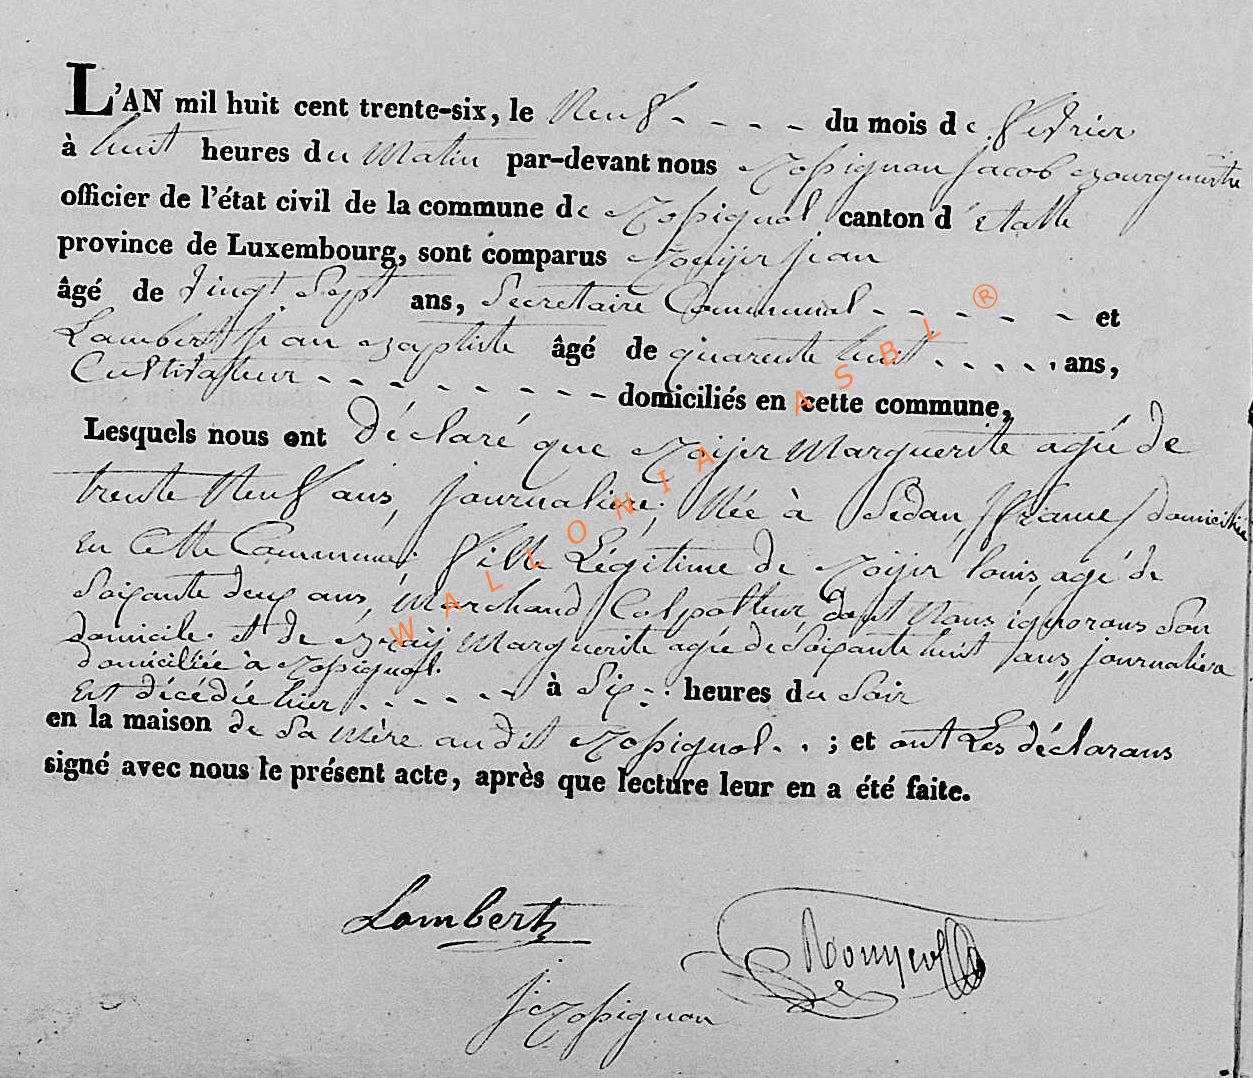 L'AN mil huit cent trente-six, le Neuf - - - - du mois de fevrier
à huit heures du Matin par-devant nous Rossignon Jacob Bourguestre
officier de l'état civil de la commune de Rossignol canton d'Etalle
province de Luxembourg, sont comparus Jean
âgé de vingt Sept ans, Secretaire Communal - - - - - et
Lambert Jean Baptiste âgé de quarente huit - - - - . ans,
Cultivateur - - - - - - - - - domiciliés en cette commune,
Lesquels nous ont déclaré que Marguerite agée de
trente Neuf ans, journaliere, Née à Sedan /france/ domiciliée
en Cette Commune; fille Légitime de louis, agé de
Soixante deux ans, Marchand Colpolteur, dont Nous ignorons Son
domicile. et de Marguerite agée de Soixante huit ans, journaliere
domiciliée à Rossignol.
est décédée hier - - - - - à Six - . heures du Soir
en la maison de Sa Mère audit Rossignol . . ; et ont Les déclarans
signé avec nous le présent acte, après que lecture leur en a été faite.
Lambert
J Rossignon
WALLONIA ASBL ®